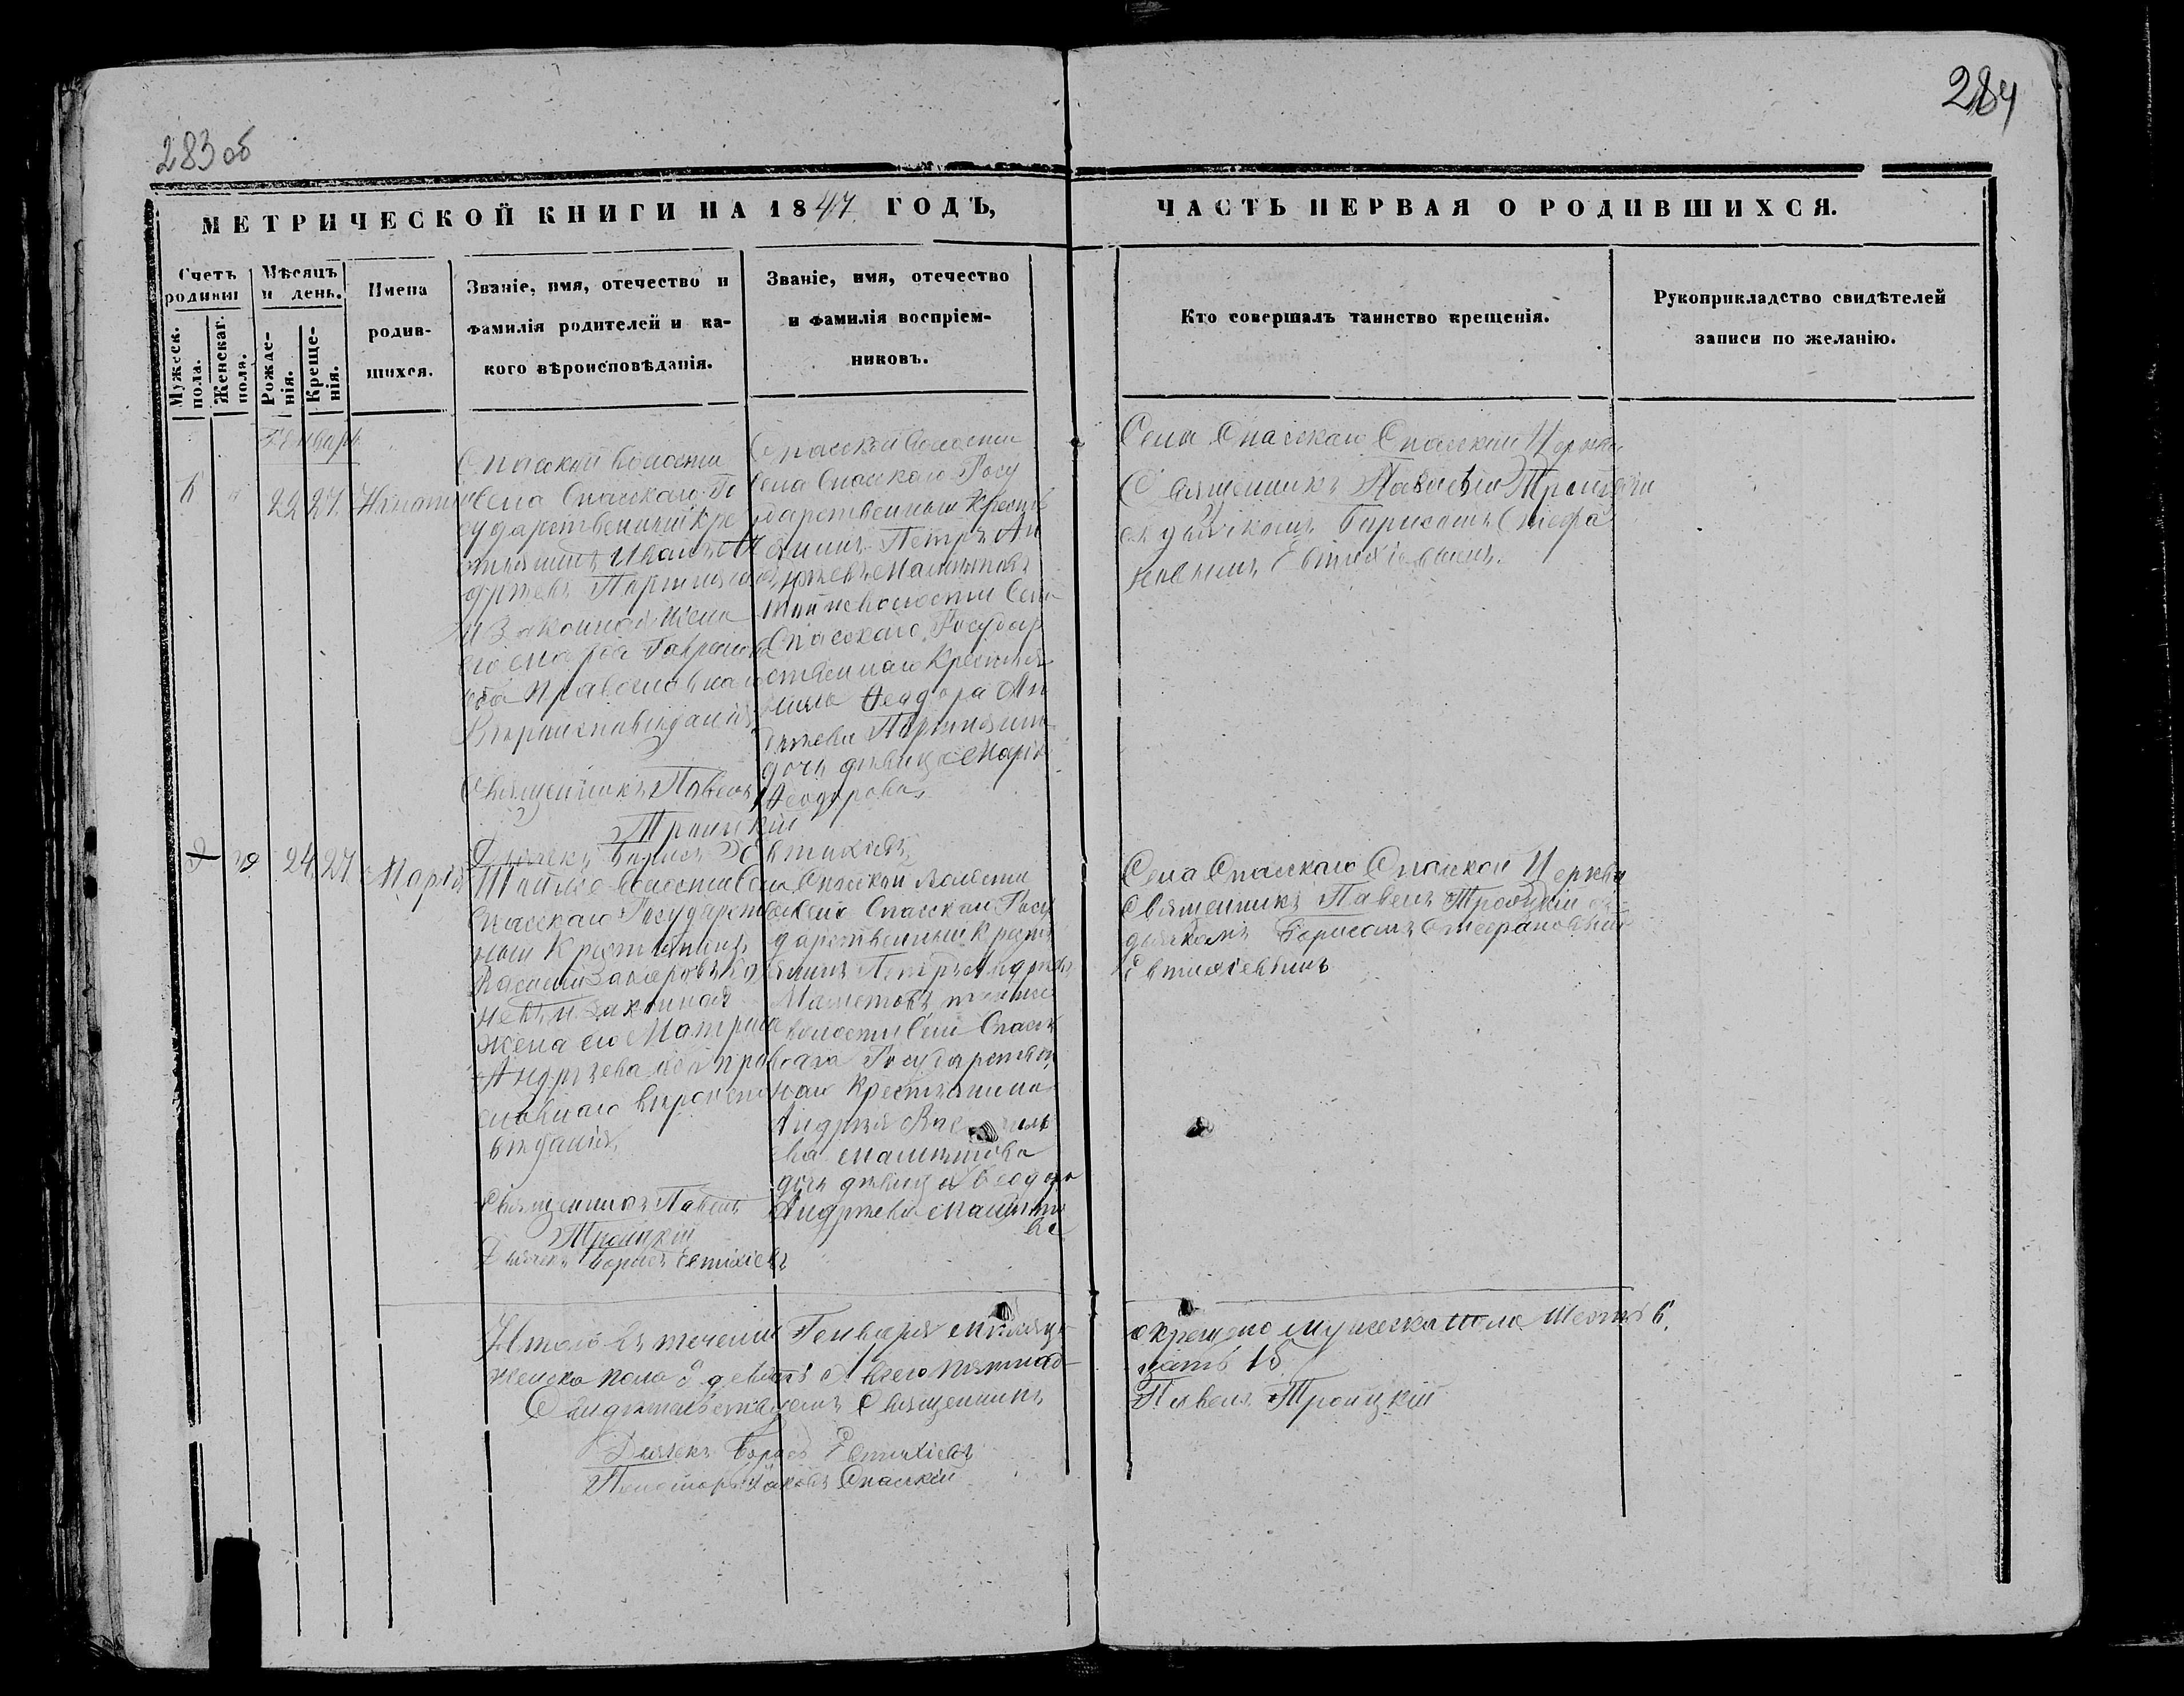 283 об
284
МЕТРИЧЕСКОЙ КНИГИ НА 1847 ГОДЪ,
ЧАСТЬ ПЕРВАЯ О РОДИВШИХСЯ.
Счетъ родивш
Мѣсяцъ и день.
Мужеск. пола.
Женскаг. пола.
Рожденія.
Крещенія.
Имена
родив-
шихся.
Званіе, имя, отечество и
фамилія родителей и ка-
кого вѣроисповѣданія.
Званіе, имя, отечество
и фамилія воспріем-
никовъ.
Кто совершалъ таинство крещенія.
Рукоприкладство свидѣтелей
записи по желанію.
Генварь
6 22 27
Спаской волости
села Спаскаго Го
сударственный Кре
стьянинъ Иванъ Ан
дреевъ
и Законная жена
его Марѳа Гаврило
ва православнаго
Вѣроисповѣданія
Священникъ Павелъ
Троицкій
Дьячекъ Борисъ Евтихіевъ
Спаской волости
села Спаскаго Госу
дарственный Кресть
янинъ Петръ Ан
дреевъ Маметовъ
той же волости села
Спаскаго Государ
ственнаго Крестья
нина Ѳеодора Ан
дреева
дочь дѣвица Марія
Ѳеодорова
Села Спаскаго Спаской Церкви
Священникъ Павелъ Троицкій
съ дьячкомъ Борисомъ Стефа
новымъ Евтихіевымъ.
9 24 27 Марія
Той же волости села
Спаскаго Государствен
ный Крестьянинъ
Василій Захаровъ
и законная
жена его Матрона
Андреева оба право
славнаго вѣроиспо
вѣданія
Священникъ Павелъ
Троицкій
Дьячекъ Борисъ Евтихіевъ
Спаской волости
села Спаскаго Госу
дарственный Кресть
янинъ Петръ Андреевъ
Маметовъ той же
волости села Спаск
аго Государствен
наго Крестьянина
Андрея Василь
ева
дочь дѣвица Ѳеодора
Андреева
Села Спаскаго Спаской Церкви
Священникъ Павелъ Троицкій съ
дьячкомъ Борисомъ Стефановымъ
Евтихіевымъ
Итого въ теченіи Генваря мѣсяца
окрещено мужеска пола шесть 6.
женска пола 9 девять а всего пятнад-
цать 15
Свидѣтельствуемъ Священникъ
Павелъ Троицкій
Дьячекъ Борисъ Евтихіевъ
Пономарь Іаковъ Спаскій